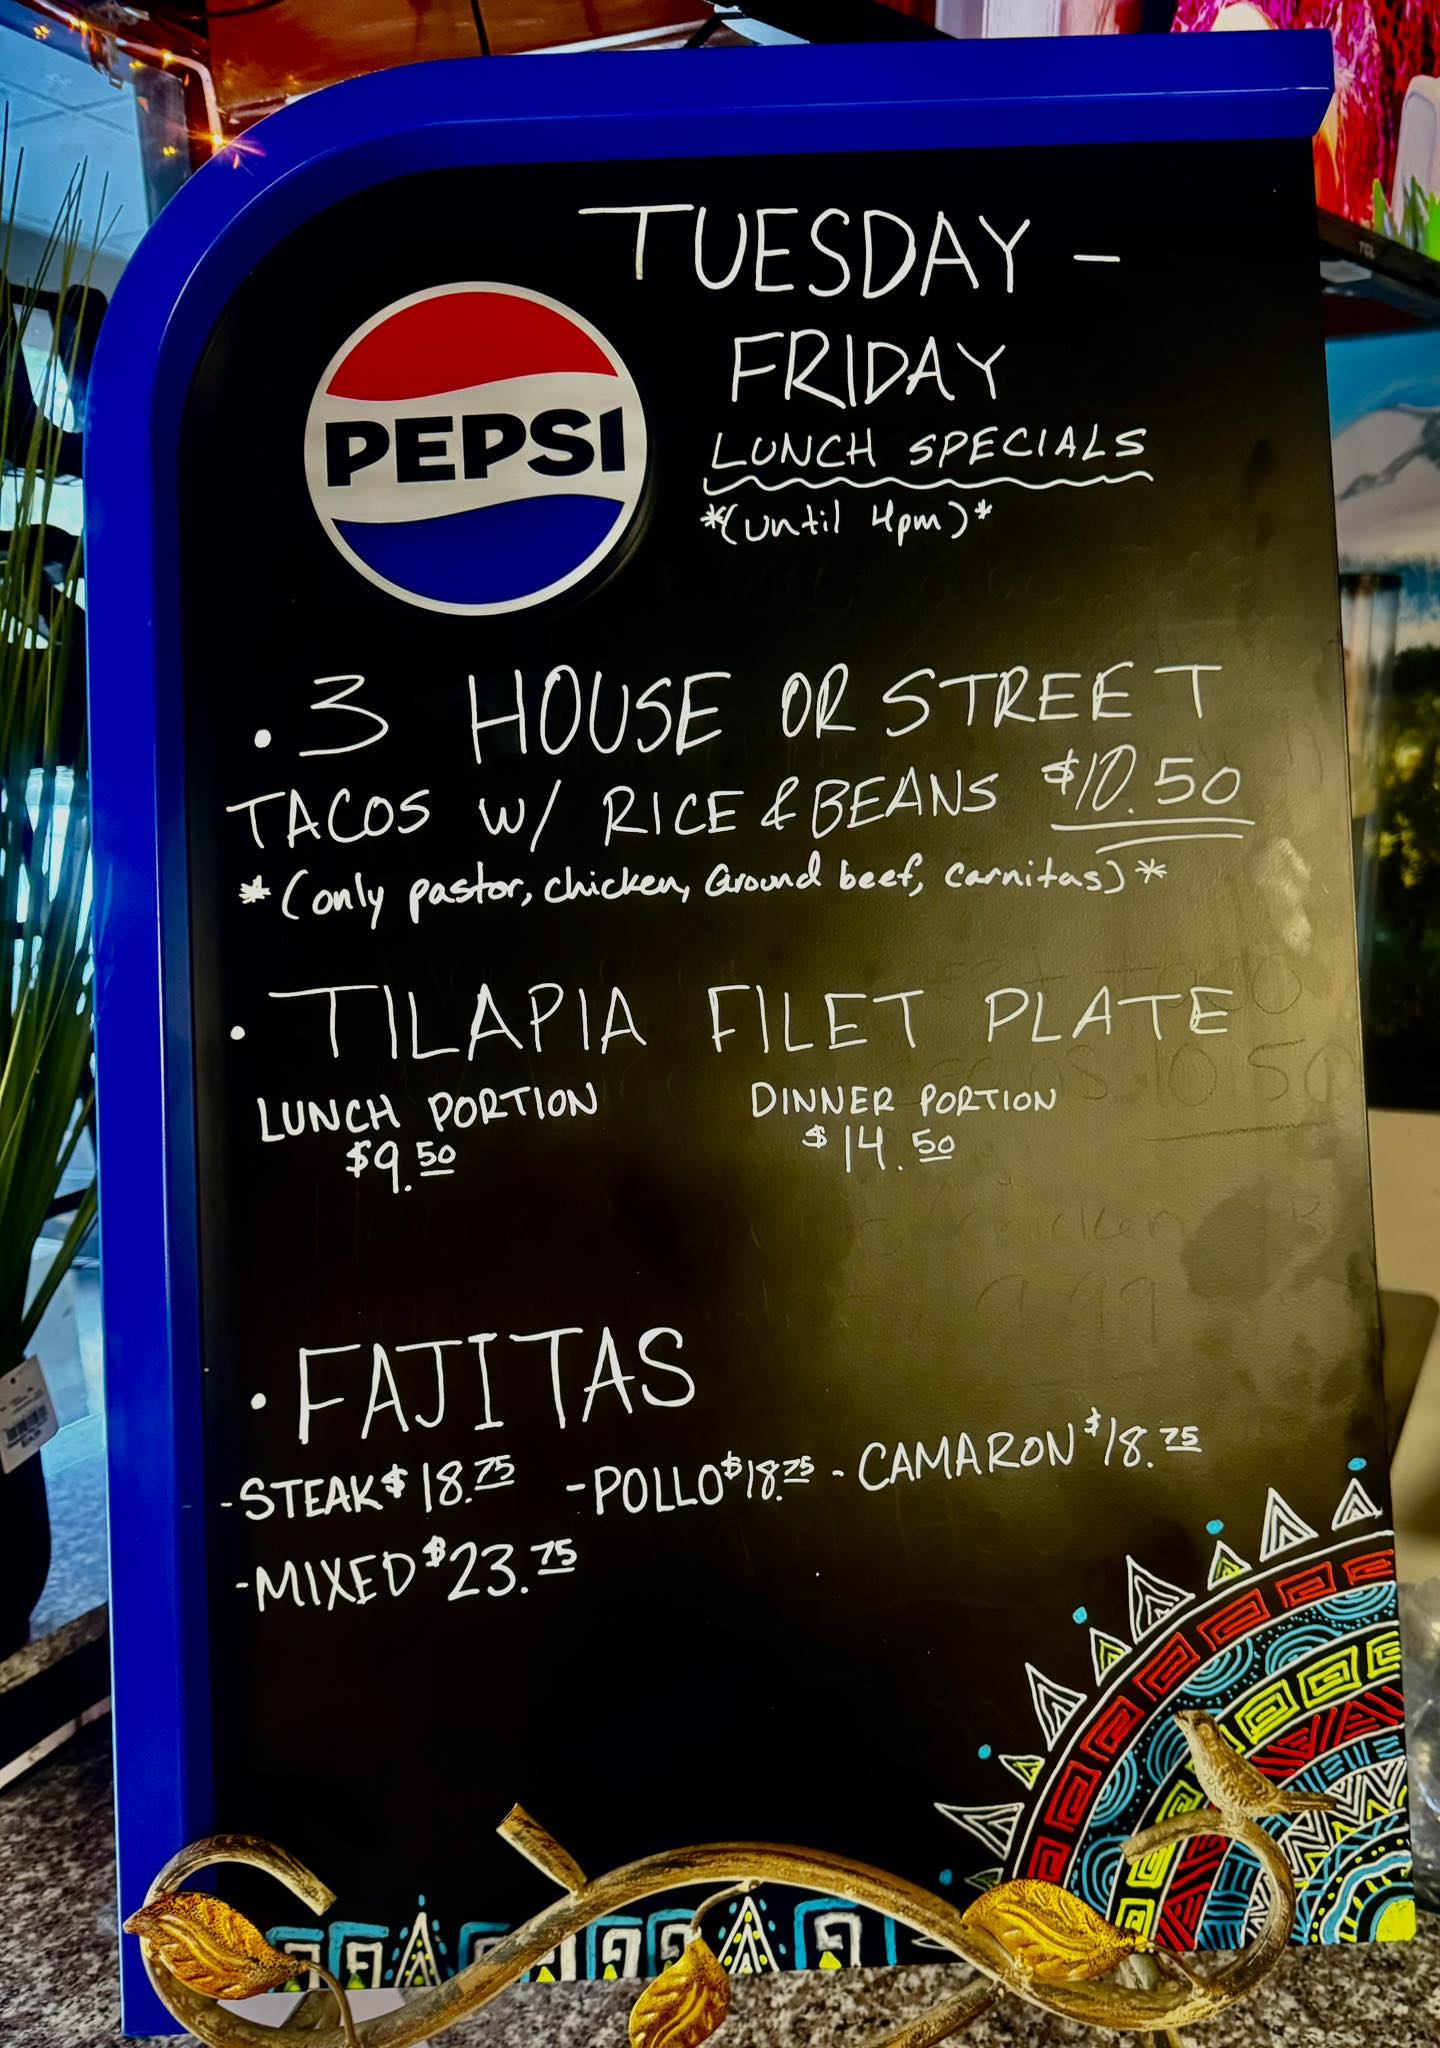 TUESDAY -
FRIDAY
LUNCH SPECIALS
*(until 4pm)*
PEPSI
• 3 HOUSE OR STREET
TACOS W/ RICE & BEANS $10.50
*(only pastor, chicken, Ground beef, carnitas)*
• TILAPIA FILET PLATE
LUNCH PORTION DINNER PORTION
$9.50 $14.50
• FAJITAS
-STEAK $18.75 -POLLO $18.75 -CAMARON $18.75
-MIXED $23.75